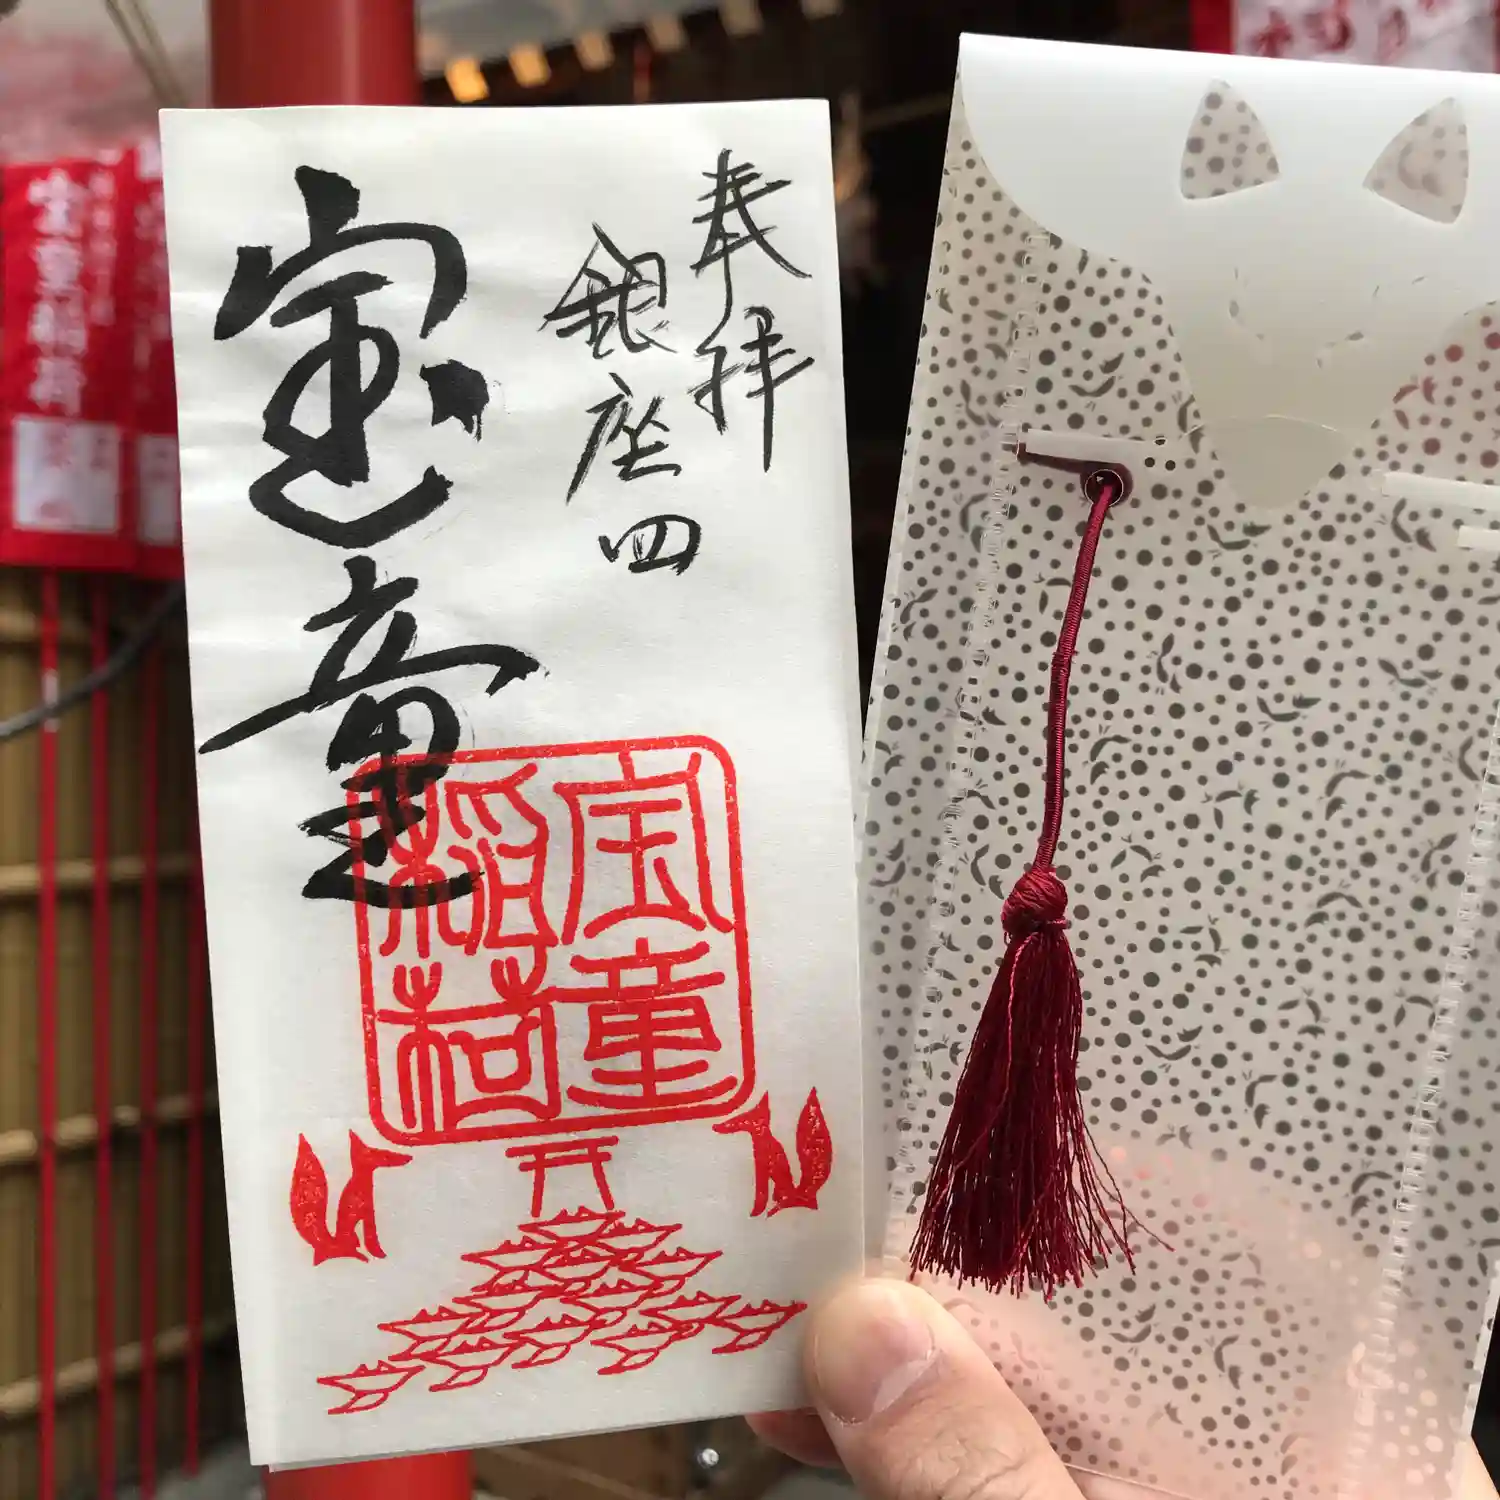 奉拝
銀座四
宝童
宝童
稲荷
宝童稲荷